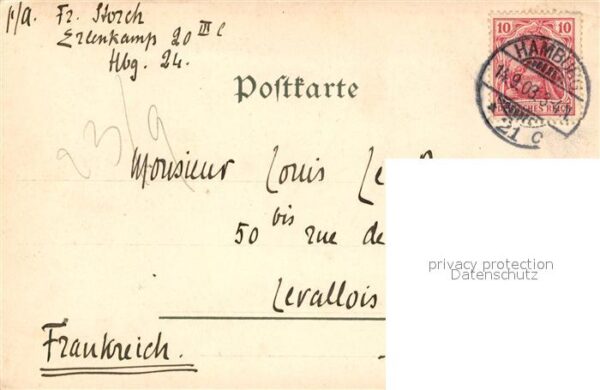 p/a. Fr. Storch
Erlenkamp 20 III c
Hbg. 24.
10 10
HAMBURG
14.9.03.3-4N.
* 21 c
Postkarte
23/9
Monsieur Louis Le
50 bis rue de
privacy protection
Datenschutz
Levallois
Frankreich.